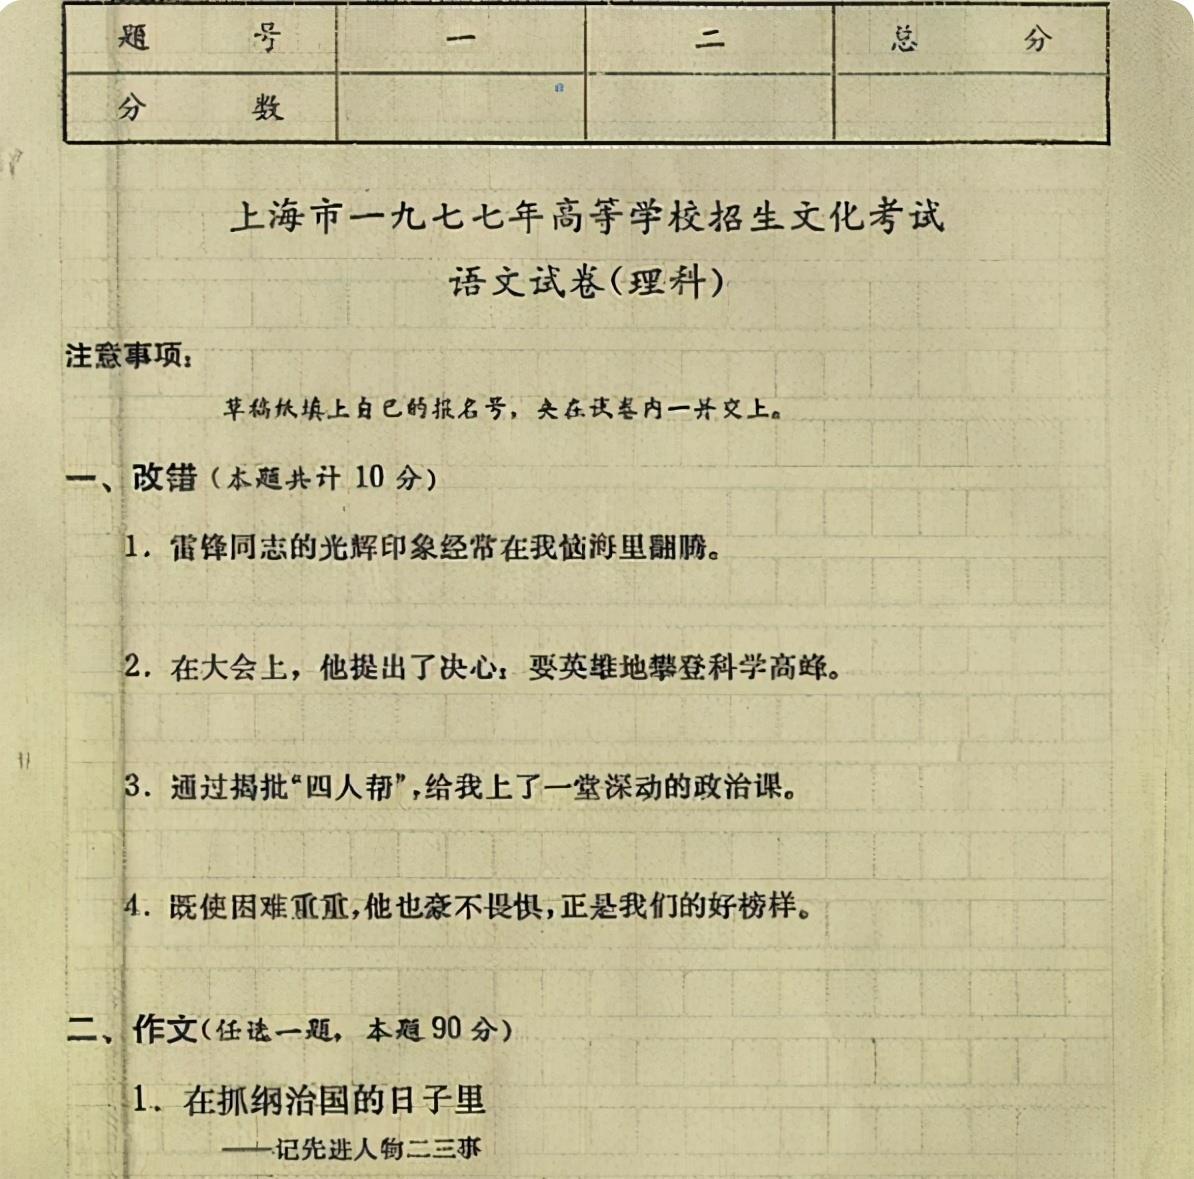 题 号 一 二 总 分
分 数
上海市一九七七年高等学校招生文化考试
语文试卷(理科)
注意事项:
草稿纸填上自己的报名号，夹在试卷内一并交上。
一、改错(本题共计 10 分)
1. 雷锋同志的光辉印象经常在我恼海里翻腾。
2. 在大会上，他提出了决心：要英雄地攀登科学高峰。
3. 通过揭批“四人帮”,给我上了一堂深动的政治课。
4. 既使困难重重,他也豪不畏惧,正是我们的好榜样。
二、作文(任选一题，本题 90 分)
1. 在抓纲治国的日子里
——记先进人物二三事